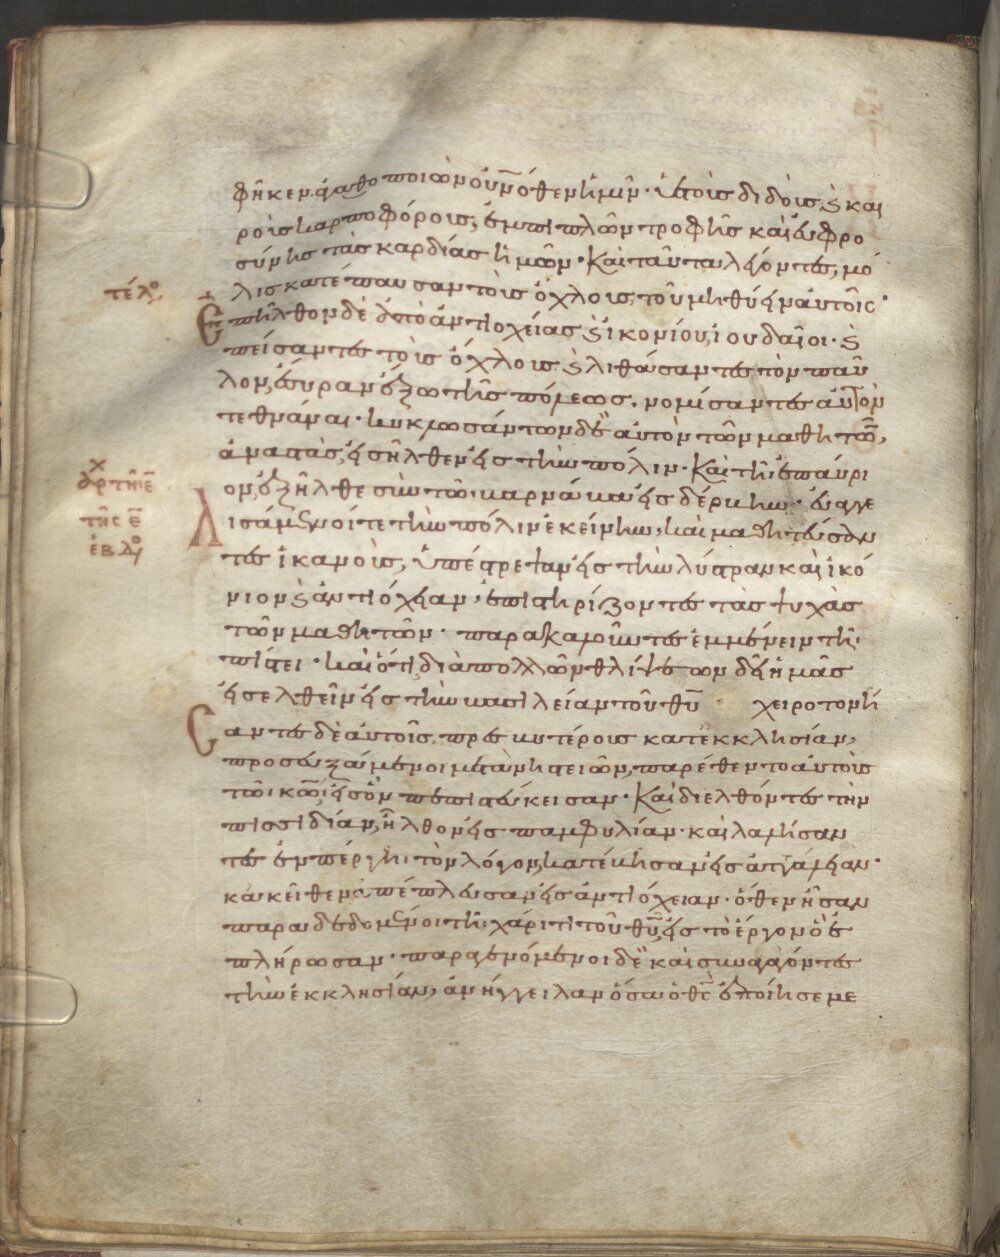 φῆκεν ἀγαθοποιῶν οὐν̅όθεν ἡμῖν· ὑετοὺς διδοὺς ϗ και
ροὺς καρποφόρους, ἐμπιπλῶν τροφῆς καὶ εὐφρο
σύνης τὰς καρδίας ἡμῶν· Καὶ ταῦτα λέγοντες, μό
τέλος
λις κατέπαυσαν τοὺς ὄχλους, τοῦ μὴ θύειν αὐτοῖς·
Επῆλθον δὲ ἀπὸ ἀντιοχείας ϗ ἰκονίου, ἰουδαῖοι· ϗ
πείσαντες τοὺς ὄχλους ϗ λιθάσαντες τὸν παῦ
λον, ἔσυραν ἔξω τῆς πόλεως· νομίσαντες αὐτὸν
τεθνάναι· κυκλωσάντων δὲ αὐτὸν τῶν μαθητῶν,
ἀναστὰς, εἰσῆλθεν εἰς τὴν πόλιν· Καὶ τῇ ἐπαύρι
ον, ἐξῆλθε σὺν τῶι βαρνάβα εἰς δέρβην· εὐαγγε
ἀρχ τῇ ε̅
τῆς ε̅
ἑβδο
λισάμενοί τε τὴν πόλιν ἐκείνην, καὶ μαθητεύσαν
τες ἱκανοὺς, ὑπέστρεψαν εἰς τὴν λύστραν καὶ ἰκό
νιον ϗ ἀντιόχειαν· ἐπιστηρίζοντες τὰς ψυχὰς
τῶν μαθητῶν· παρακαλοῦντες ἐμμένειν τῇ
πίστει· καὶ ὅτι διὰ πολλῶν θλίψεων δεῖ ἡμᾶς
εἰσελθεῖν εἰς τὴν βασιλείαν τοῦ θυ̅ χειροτονή
σαντες δὲ αὐτοῖς, πρεσβυτέρους κατ' ἐκκλησίαν,
προσευξάμενοι μετὰ νηστειῶν, παρέθεντο αὐτοὺς
τῶι κω̅, εἰς ὃν πεπιστεύκεισαν· Καὶ διελθόντες τὴν
πισσιδίαν, ἦλθον εἰς παμφυλίαν· καὶ λαλήσαν
τες ἐν πέργῃ τὸν λόγον, κατέβησαν εἰς ἀτταλείαν·
κἀκεῖθεν ἀπέπλευσαν εἰς ἀντιόχειαν· ὅθεν ἦσαν
παραδεδομένοι τῇ χάριτι τοῦ θυ̅, εἰς τὸ ἔργον ὃ ἐ
πλήρωσαν· παραγενόμενοι δὲ καὶ συναγαγόντες
τὴν ἐκκλησίαν, ἀνήγγειλαν ὅσα ὁ θς̅ ἐποίησε με